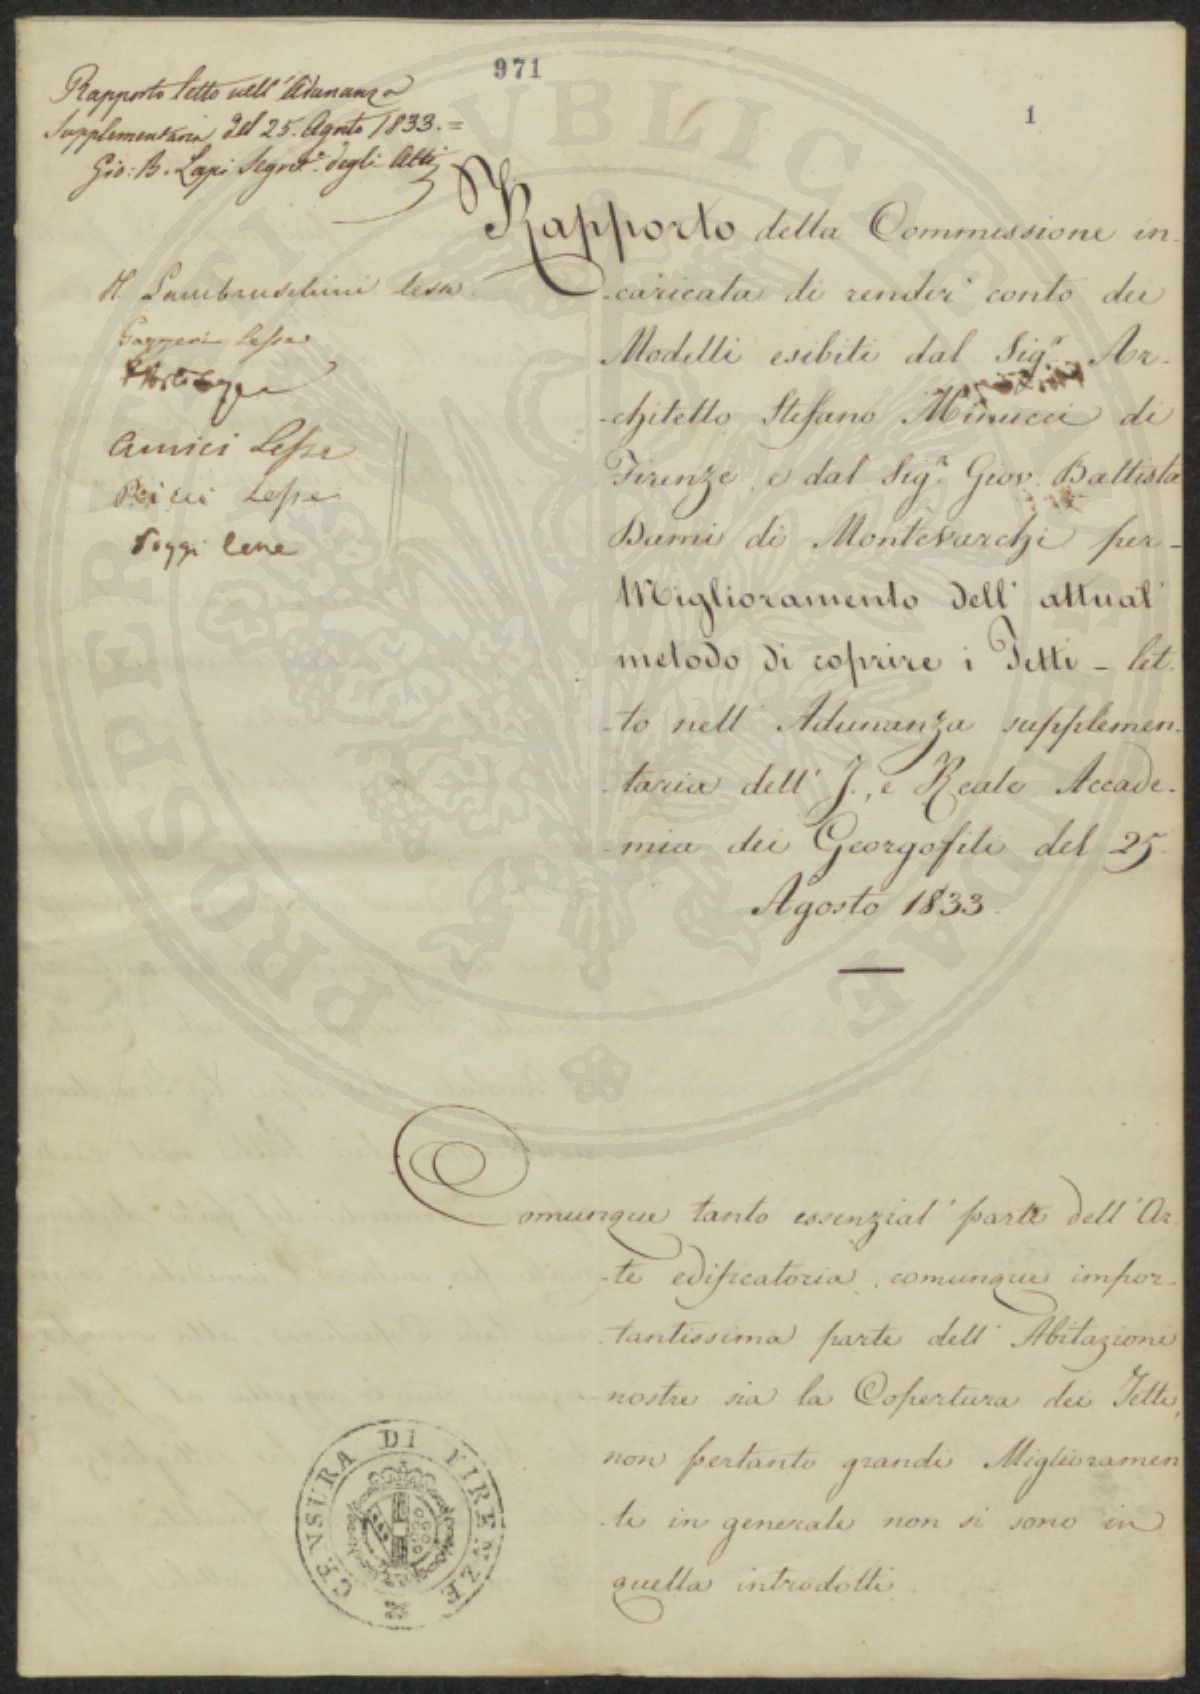 971
1
Rapporto letto nell' Adunanza
Supplementaria del 25. Agosto 1833. =
Gio: B. Lapi Segret.o degli Atti
R. Lambruschini lesse
Gazzeri lesse
Amici Lesse
Ricci Lesse
Poggi lesse
Rapporto della Commissione in-
-caricata di render conto dei
Modelli esibiti dal Sig.r Ar-
-chitetto Stefano Minucci di
Firenze e dal Sig.r Giov. Battista
Dami di Montevarchi per
Miglioramento dell' attual'
metodo di coprire i Tetti - let-
-to nell' Adunanza supplemen-
-taria dell' I., e Reale Accade-
-mia dei Georgofili del 25
Agosto 1833.
Comunque tanto essenzial' parte dell' Ar-
-te edificatoria, comunque impor-
-tantissima parte dell' Abitazioni
nostre sia la Copertura dei Tetti,
non pertanto grandi Miglioramen
-ti in generale non si sono in
quella introdotti
CENSURA DI FIRENZE
PROSPERITATI PUBLICAE AUGENDAE